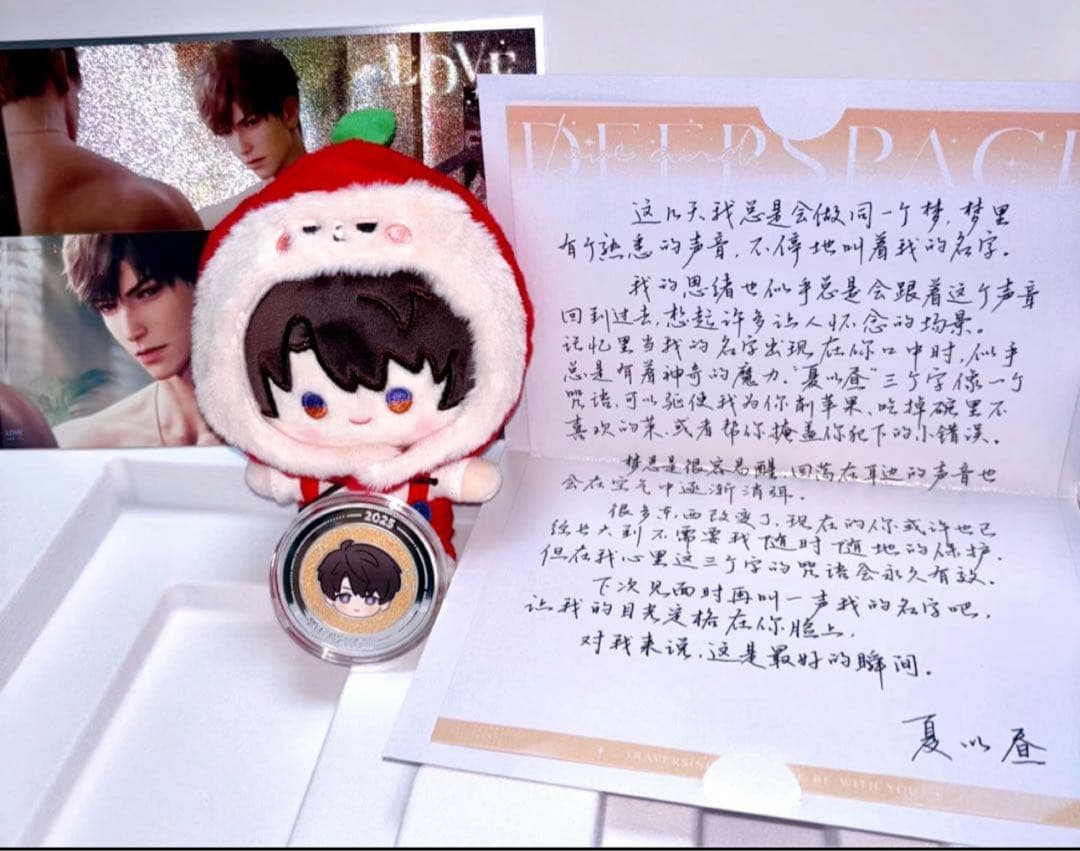 LOVE
DEEPSPACE
Love and
这几天我总是会做同一个梦,梦里
有个熟悉的声音,不停地叫着我的名字。
我的思绪也似乎总是会跟着这个声音
回到过去,想起许多让人怀念的场景。
记忆里当我的名字出现在你口中时,似乎
总是有着神奇的魔力。“夏以昼”三个字像一个
咒语,可以驱使我为你削苹果、吃掉碗里不
喜欢的菜、或者帮你掩盖你犯下的小错误。
梦总是很容易醒,回荡在耳边的声音也
会在空气中逐渐消弭。
很多东西改变了,现在的你或许也已
经长大到不需要我随时随地的保护。
但在我心里这三个字的咒语会永久有效。
下次见面时再叫一声我的名字吧,
让我的目光定格在你脸上,
对我来说,这是最好的瞬间。
夏以昼
BE WITH YOU
2025